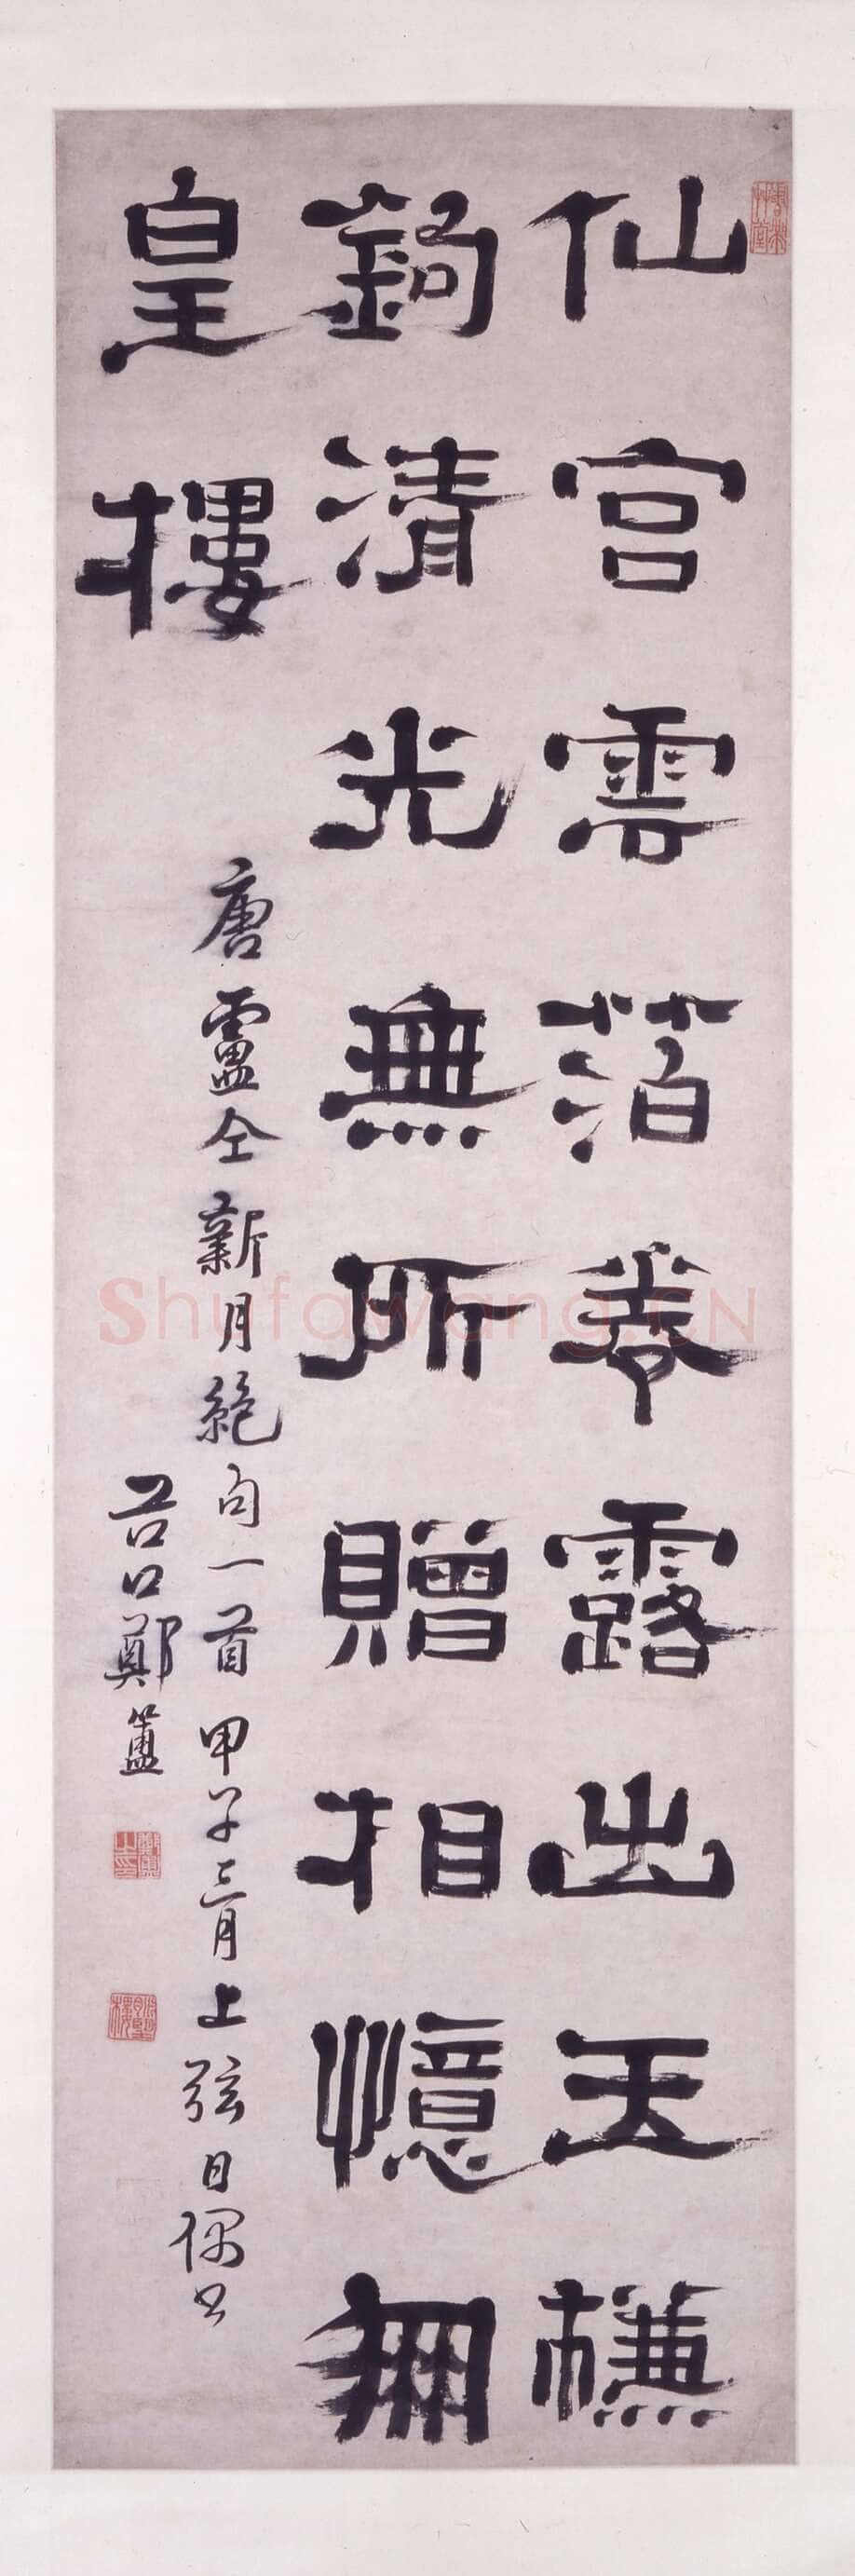 仙宮雲萡卷露出玉槏
鉤清光無所贈相憶鳳
皇樓
唐盧仝新月絕句一首甲子三月上弦日偶书
谷口鄭簠
鄭簠之印
Shufawang.CN